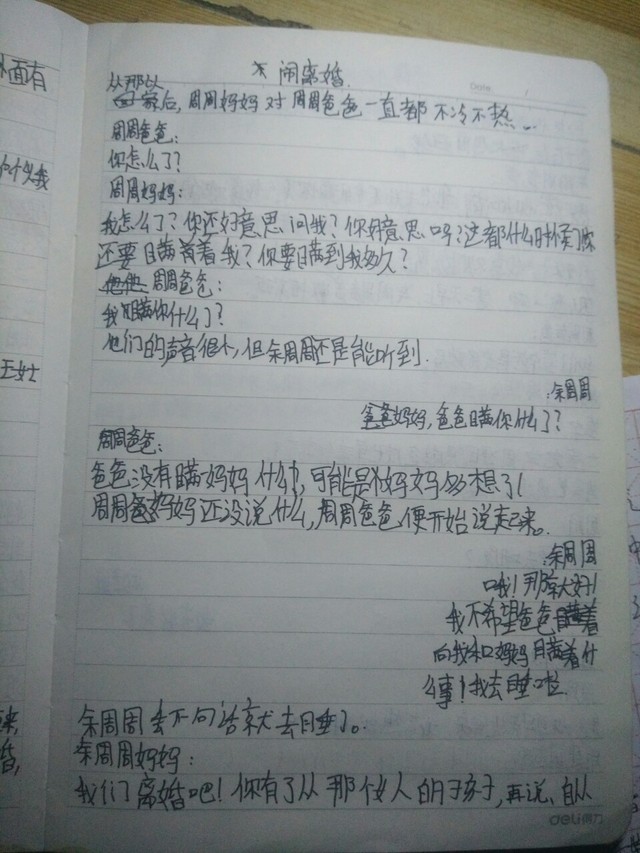 外面有
个头我
王女士
闹离婚
Date
从那以
后,周周妈妈对周周爸爸一直都不冷不热。
周周爸爸:
你怎么了?
周周妈妈:
我怎么了?你还好意思问我?你好意思吗?这都什么时候了你
还要瞒着我?你要瞒到我多久?
周周爸爸:
我瞒你什么了?
他们的声音很小,但余周周还是能听到.
:余周周
爸爸妈妈,爸爸瞒你什么了?
周周爸爸:
爸爸没有瞒妈妈什么,可能是你妈妈多想了!
周周妈妈还没说什么,周周爸爸便开始说起来。
:余周周
哦!那就太好!
我不希望爸爸
向我和妈妈瞒着什
么事!我去睡啦
余周周 句话就去睡了。
余周周妈妈:
我们离婚吧!你有了从那个女人的孩子,再说、自从
deli得力